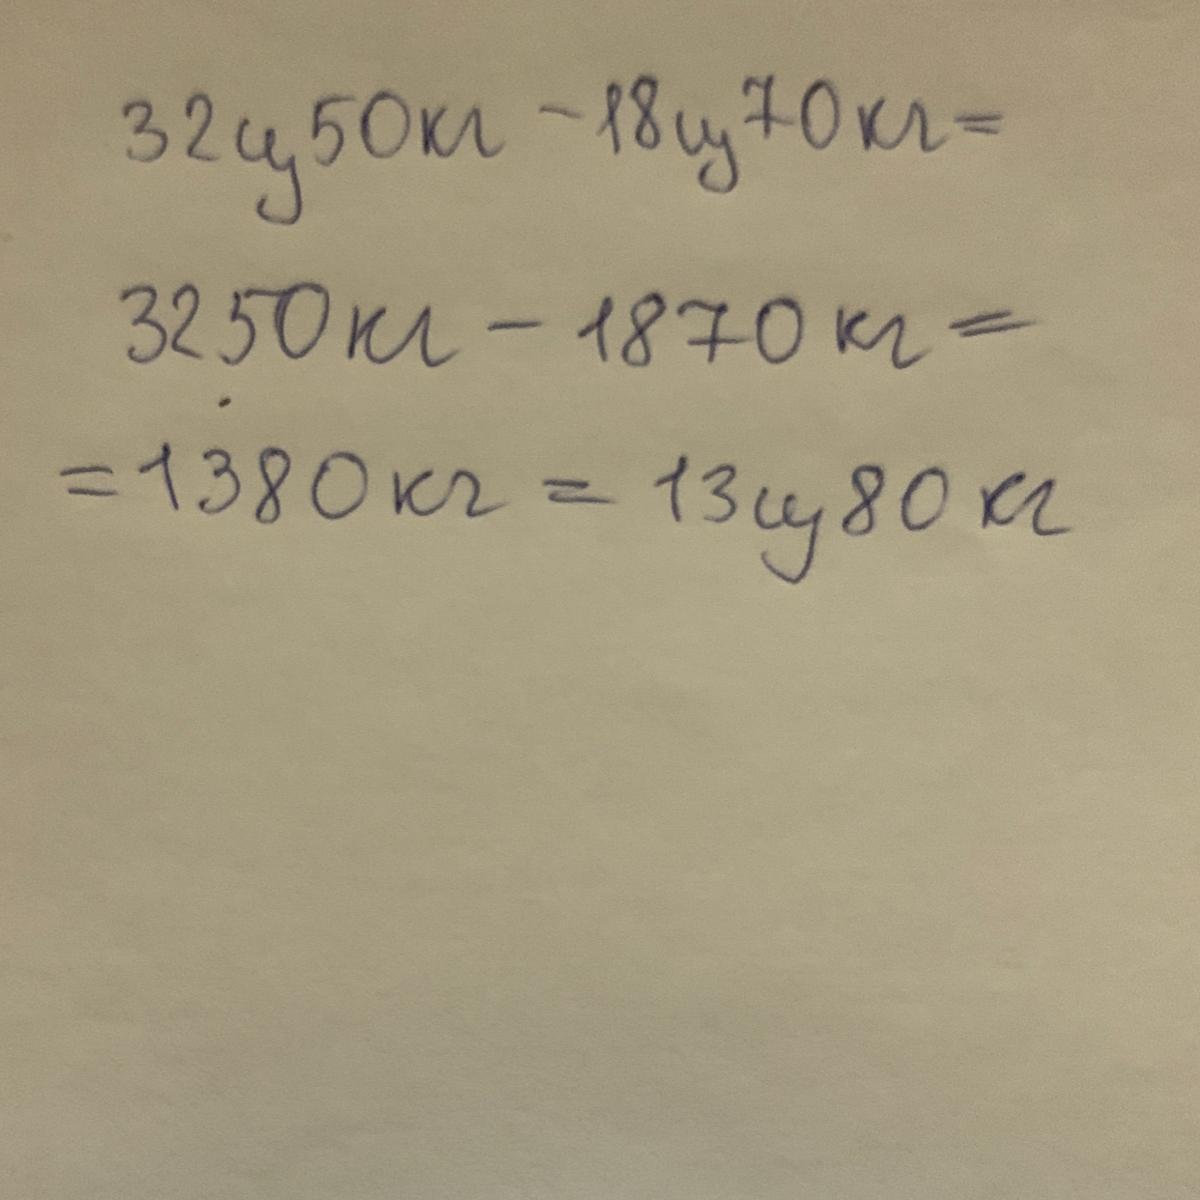 32ц50кг - 18ц70кг =
3250кг - 1870кг =
= 1380кг = 13ц80кг